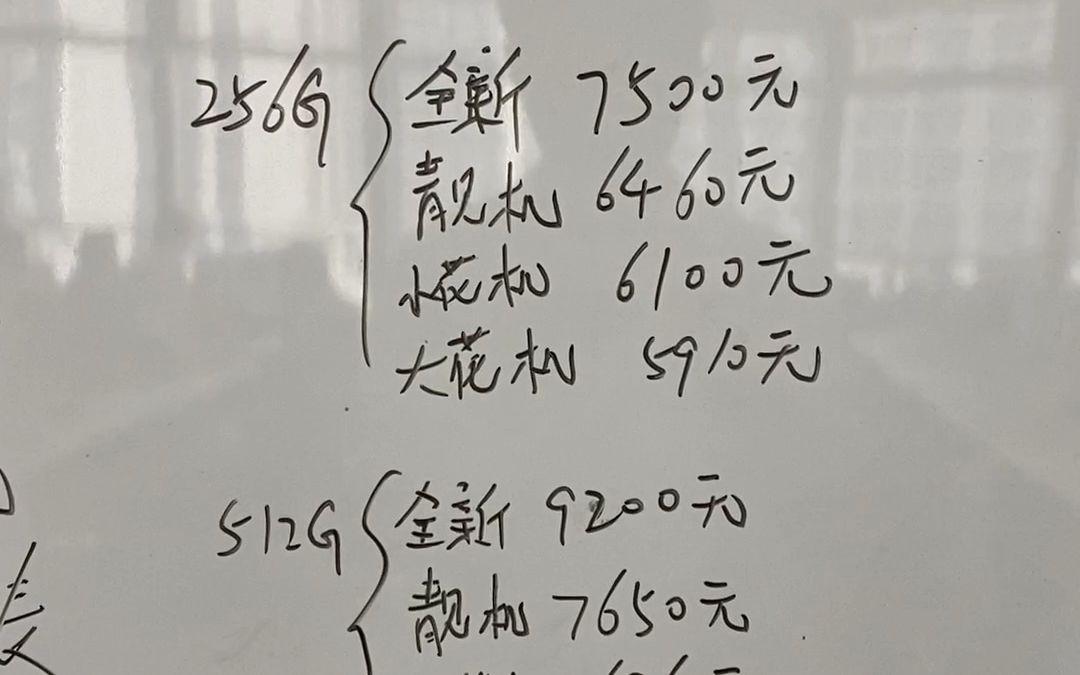 256G { 全新 7500元
靓机 6460元
小花机 6100元
大花机 5910元
512G { 全新 9200元
靓机 7650元